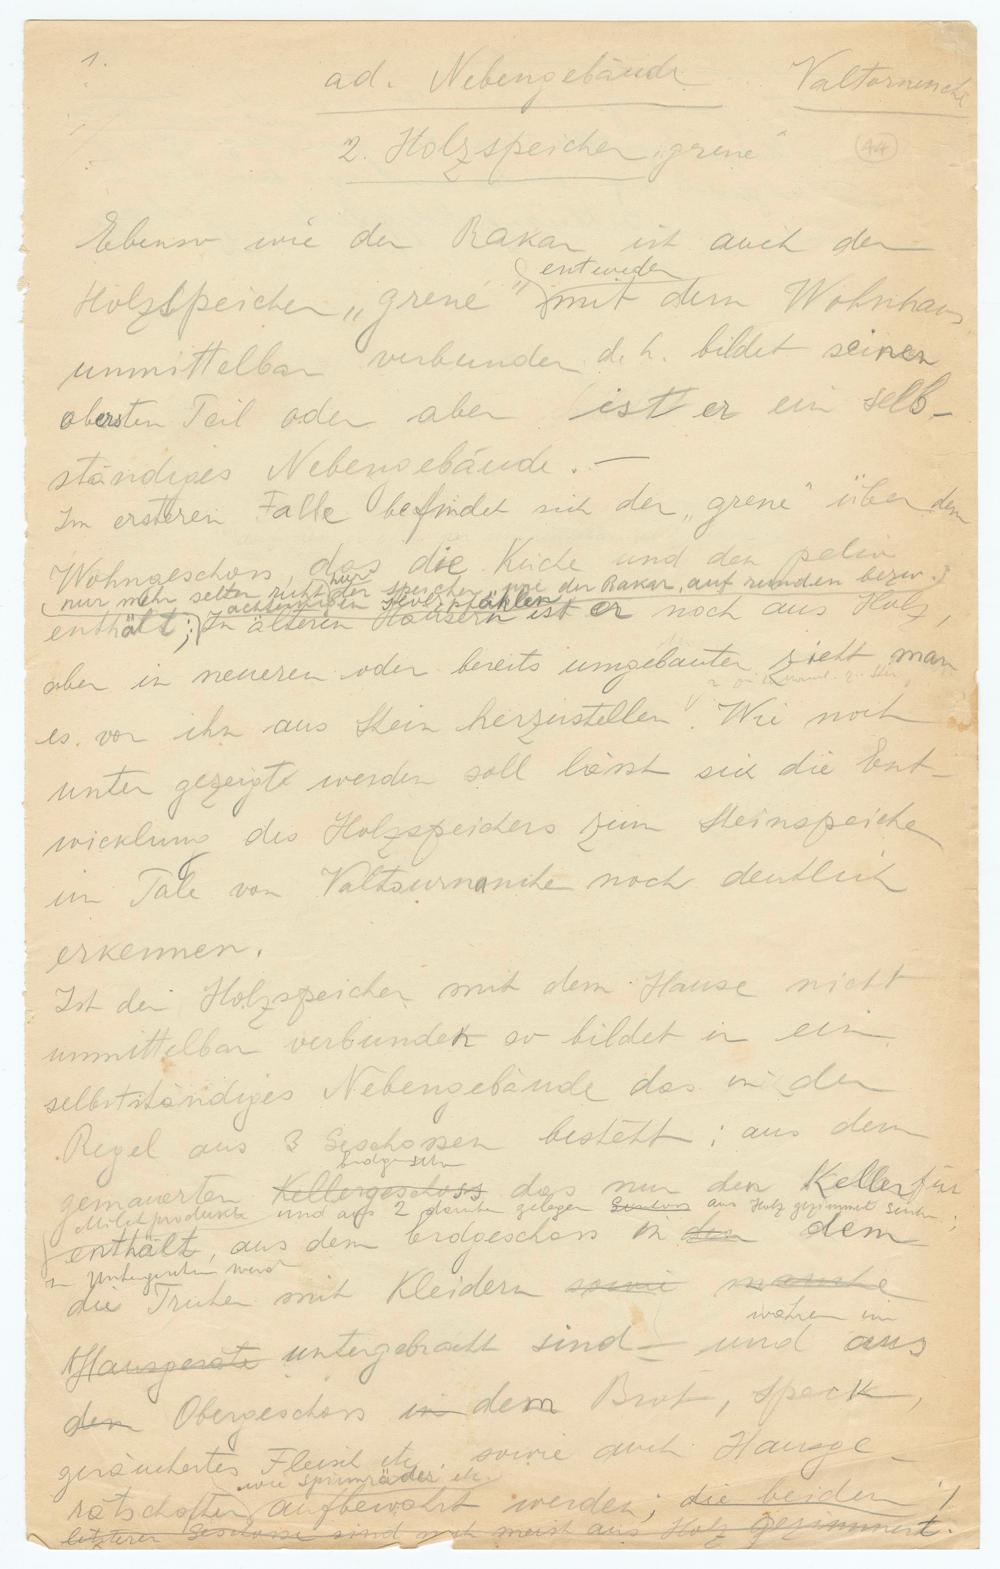 1.
ad. Nebengebäude Valtornenche
2. Holzspeicher „grenè“ 44
Ebenso wie der Rakar ist auch der
entweder
Holzspeicher „grenè“ mit dem Wohnhaus
unmittelbar verbunden d. h. bildet seinen
obersten Teil oder aber ist er ein selb-
ständiges Nebengebäude. —
Im ersteren Falle befindet sich der „grenè“ über dem
Wohngeschoss, das die Küche und den pelio
nur mehr selten ruht der Speicher, wie der Rakar, auf runden bezw.
achteckigen Holzpfählen
enthält; In älteren Häusern ist er noch aus Holz,
aber in neueren oder bereits umgebauten zieht man
es vor ihn aus Stein herzustellen. Wie noch
unten gezeigt werden soll lässt sich die Ent-
wicklung des Holzspeichers zum Steinspeicher
im Tale von Valtournanche noch deutlich
erkennen.
Ist der Holzspeicher mit dem Hause nicht
unmittelbar verbunden so bildet er ein
selbstständiges Nebengebäude das in der
Regel aus 3 Geschossen besteht; aus dem
gemauerten Kellergeschoss das nur den Keller für
Milchprodukte und aus 2 darüber aus Holz gezimmert sind;
enthält, aus dem Erdgeschoss in den dem
die Truhen mit Kleidern sowie manche
während im
Hausgeräte untergebracht sind — und aus
den Obergeschoss in dem Brot, Speck,
geräuchertes Fleisch etc. sowie auch Hausge-
wie Spinnräder etc.
rätschaften aufbewahrt werden; die beiden
letzteren Geschosse sind noch meist aus Holz gezimmert.